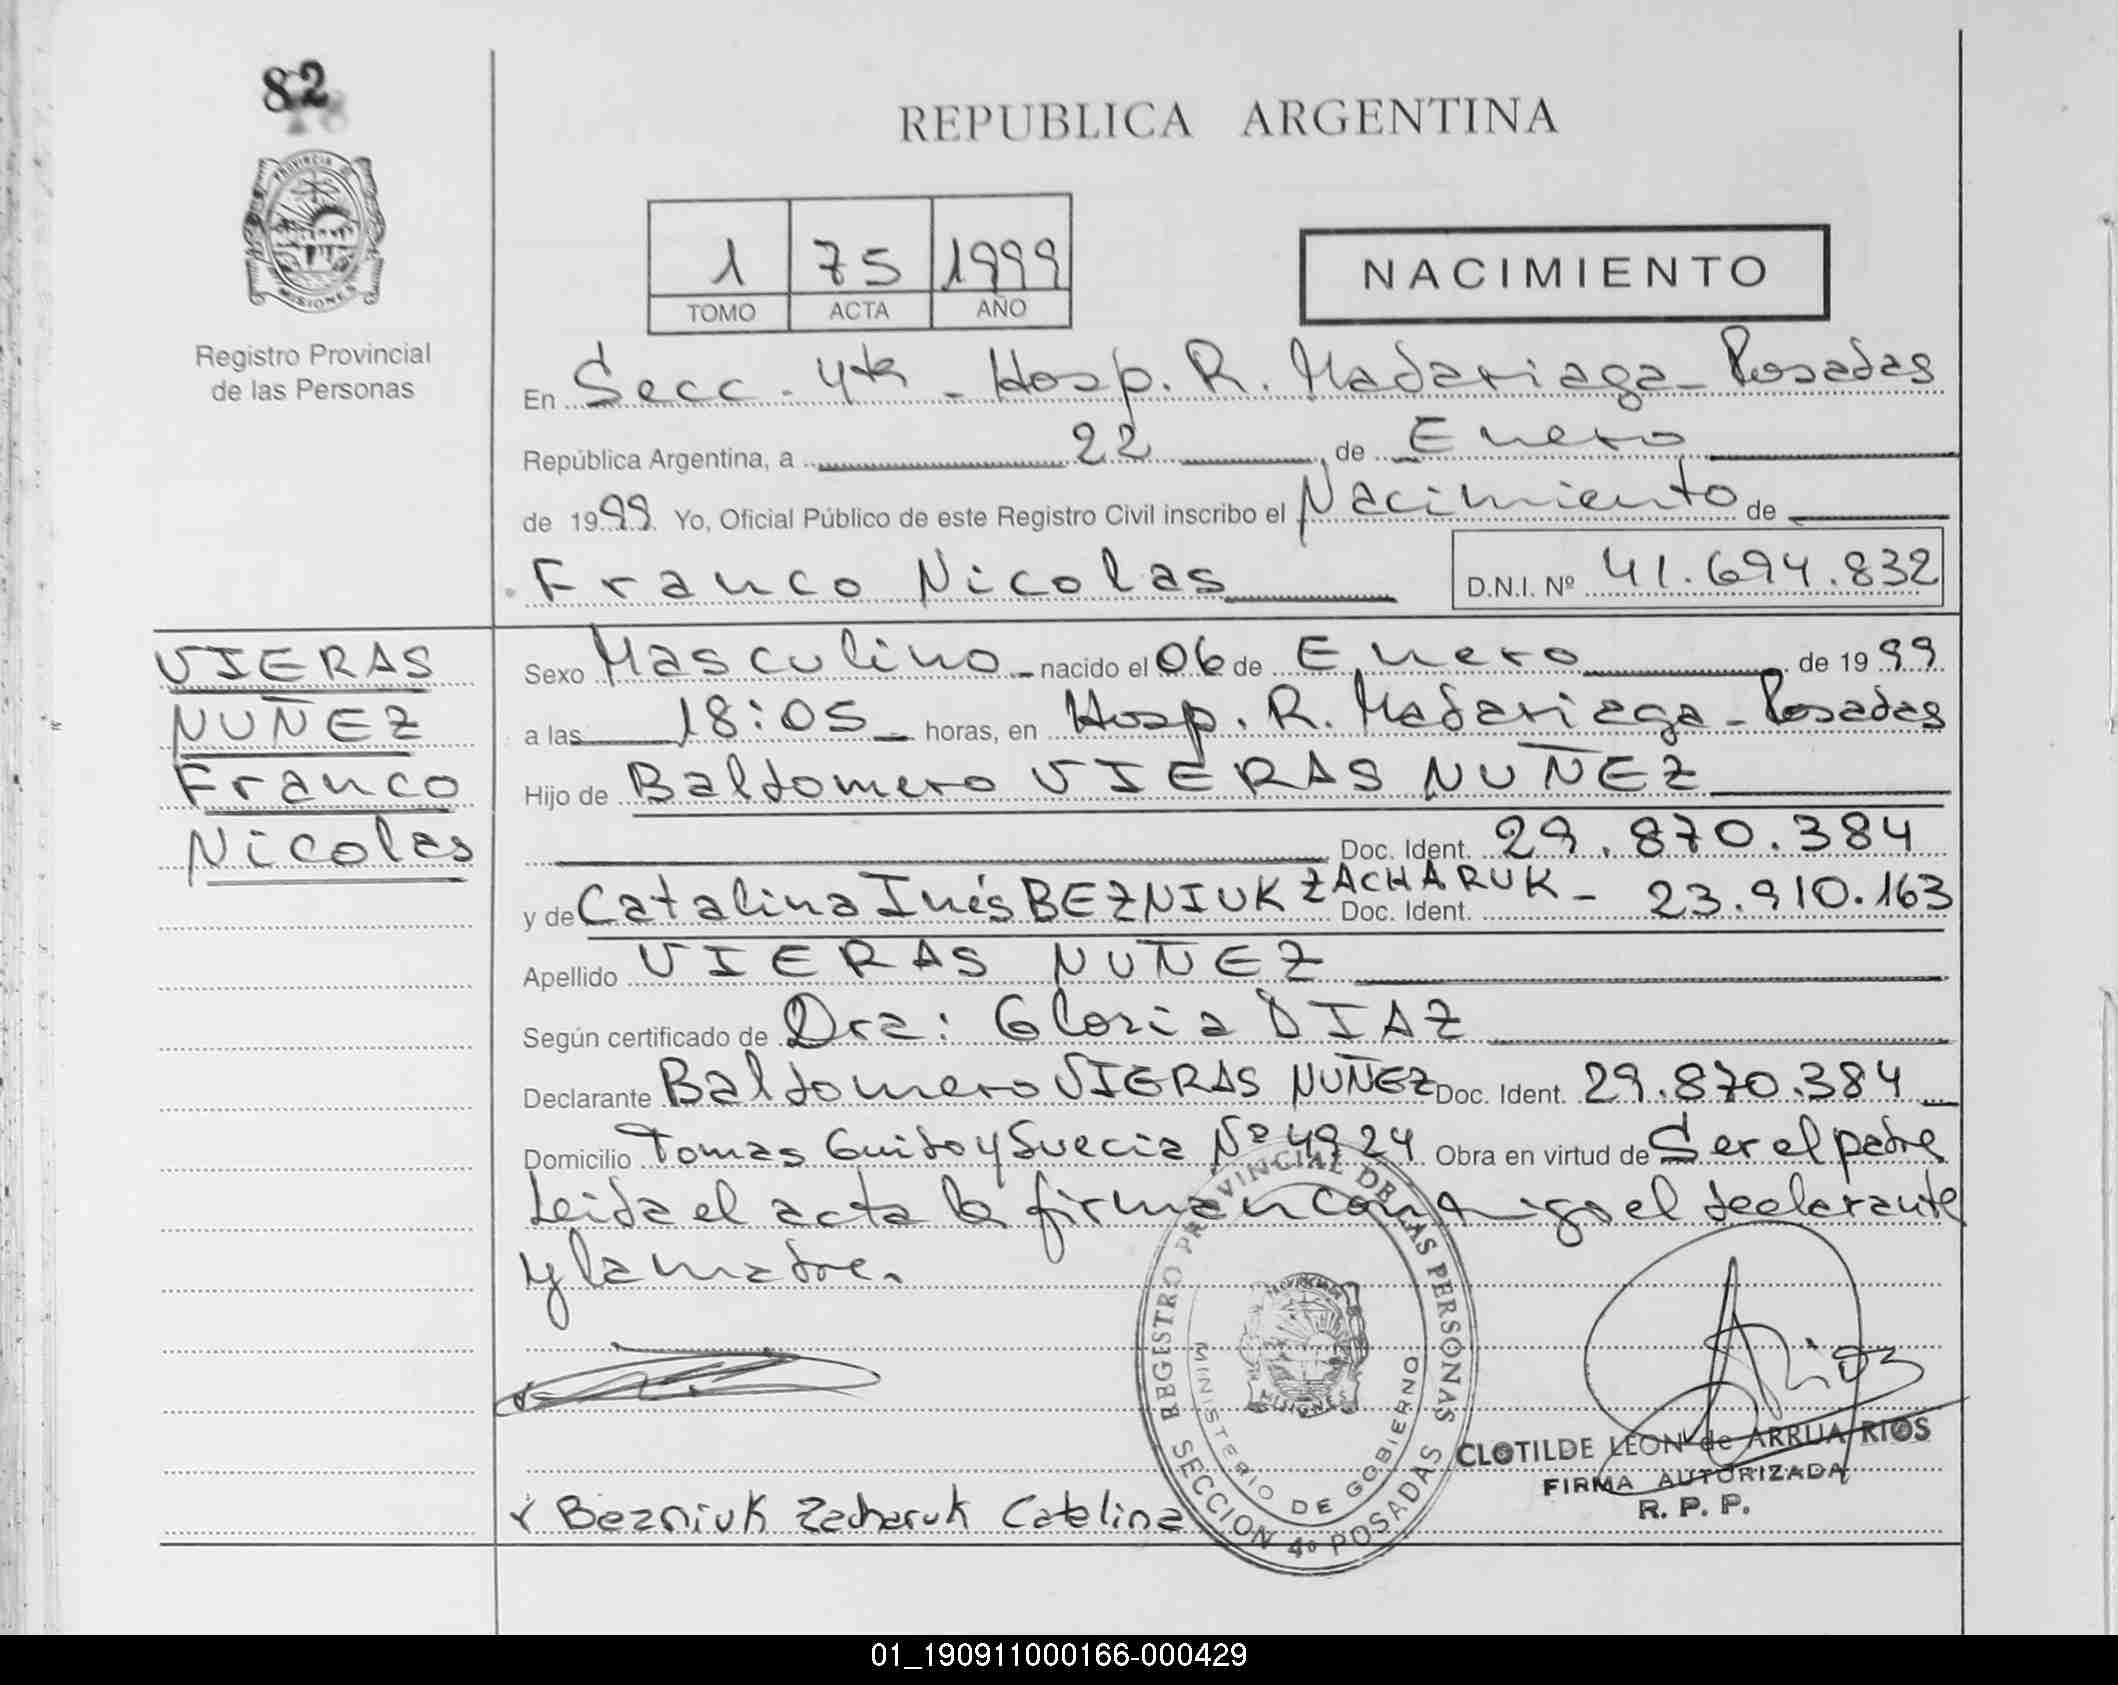 82
REPUBLICA ARGENTINA
PROVINCIA DE
MISIONES
Registro Provincial
de las Personas
1 75 1999
TOMO ACTA AÑO
NACIMIENTO
En Secc. 4ta - Hosp. R. Madariaga - Posadas
República Argentina, a 22 de Enero
de 1999 Yo, Oficial Público de este Registro Civil inscribo el Nacimiento de
Franco Nicolas D.N.I. Nº 41.694.832
VIERAS
NUÑEZ
Franco
Nicolas
Sexo Masculino - nacido el 06 de Enero de 1999
a las 18:05 horas, en Hosp. R. Madariaga - Posadas
Hijo de Baldomero VIERAS NUÑEZ
Doc. Ident. 29.870.384
y de Catalina Inés BEZNIUK ZACHARUK - Doc. Ident. 23.910.163
Apellido VIERAS NUÑEZ
Según certificado de Dra: Gloria DIAZ
Declarante Baldomero VIERAS NUÑEZ Doc. Ident. 29.870.384
Domicilio Tomas Guido y Suecia Nº 4924 Obra en virtud de Ser el padre
Leida el acta la firman conmigo el declarante
y la madre.
REGISTRO PROVINCIAL DE LAS PERSONAS
MINISTERIO DE GOBIERNO
SECCION 4º POSADAS
Rios
CLOTILDE LEON de ARRUA RIOS
FIRMA AUTORIZADA
R. P. P.
Bezniuk Zacharuk Catalina
01_190911000166-000429